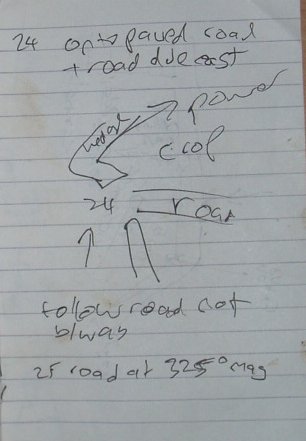 24 onto paved road
+ road due east
power
24 road
follow road not
b/way
25 road at 325° mag